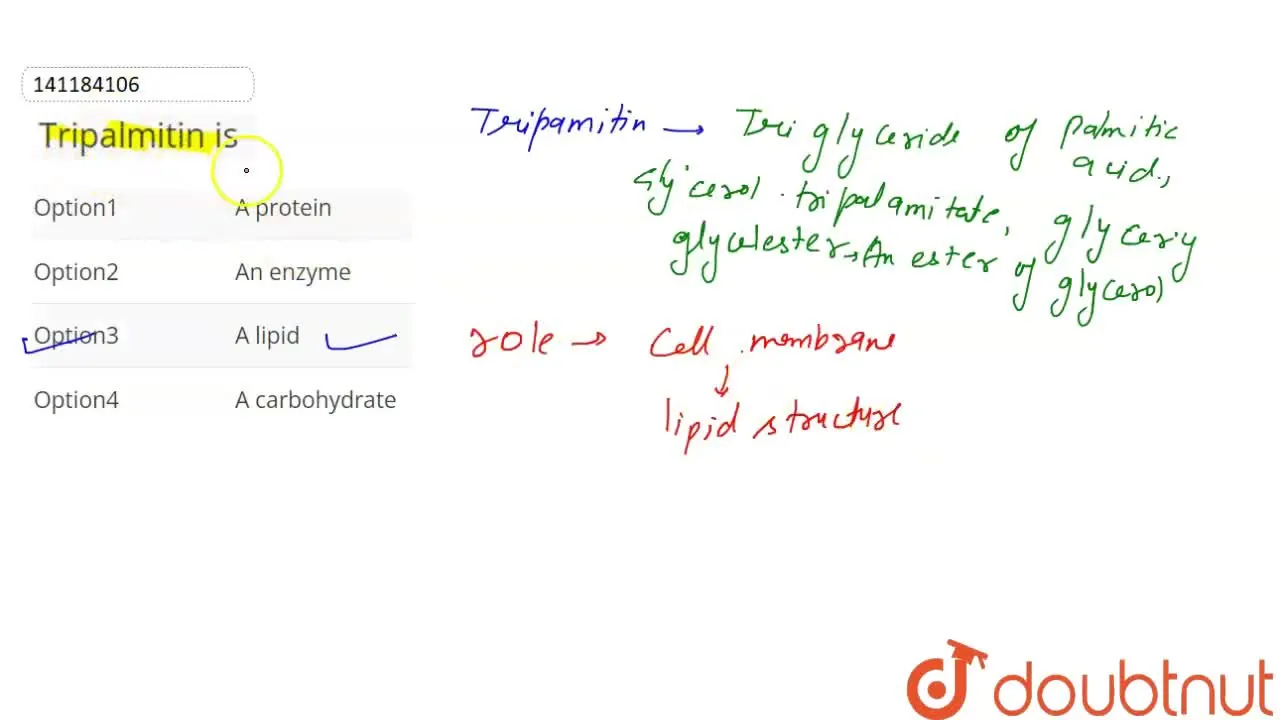 141184106
Tripalmitin is
Option1 A protein
Option2 An enzyme
Option3 A lipid
Option4 A carbohydrate
Tripamitin → Tri glyceride of palmitic
acid.,
Glycerol.tripalamitate, glycery
glycelester, An ester of glycerol
role → Cell membrane
↓
lipid structure
doubtnut